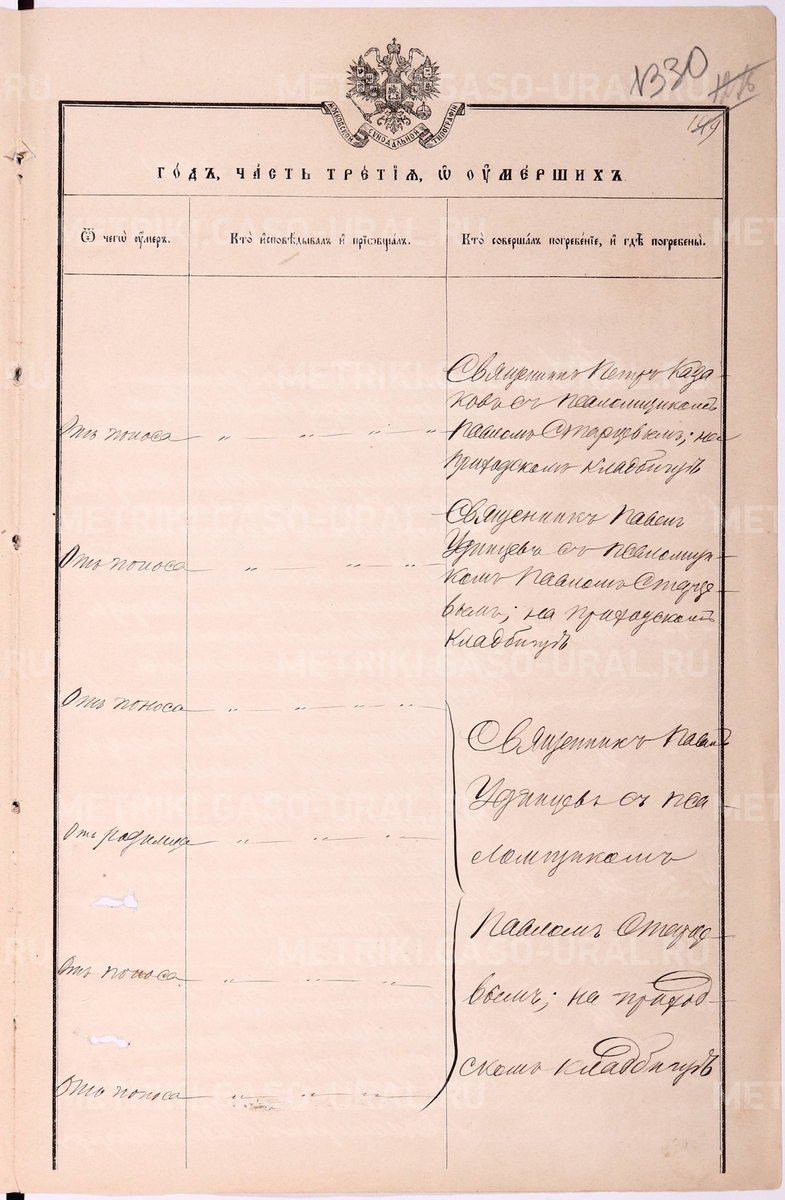 330
МОСКОВСКОЙ СѴНОДАЛЬНОЙ ТИПОГРАФІИ
ГО́ДЪ, ЧА́СТЬ ТРЕ́ТІѦ, Ѡ҆ ОУ҆МЕ́РШИХЪ.
Ѿ чегѡ̀ оу҆́меръ.
Кто̀ и҆сповѣ́дывалъ и҆ прїѡбща́лъ.
Кто̀ соверша́лъ погребе́нїе, и҆ гдѣ̀ погребены̀.
Отъ поноса
Священникъ Петръ Каза-
ковъ съ псаломщикомъ
Павломъ Старцевымъ; на
приходскомъ кладбищѣ
Отъ поноса
Священникъ Павелъ
Удинцевъ съ псаломщи-
комъ Павломъ Старце-
вымъ; на приходскомъ
кладбищѣ
Отъ поноса
Отъ родимца
Отъ поноса
Отъ поноса
Священникъ Павелъ
Удинцевъ съ пса-
ломщикомъ
Павломъ Старце-
вымъ; на приход-
скомъ кладбищѣ
METRIKI.GASO-URAL.RU